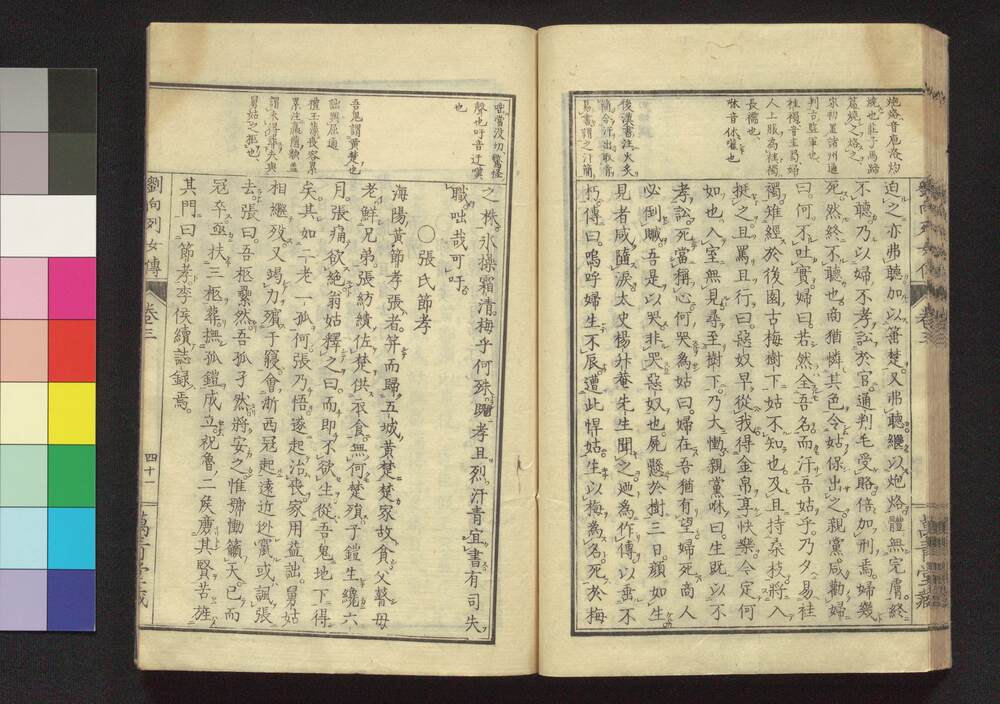 炮烙音庖洛灼
燒也莊子馬蹄
篇燒之烙之
宋初置諸州通
判古監軍也
桂樹音圭蜀婦
人上服為桂襡
長襦也
咻音休讙也
後漢書注火炙
簡令汗出取青
易書謂之汗簡
迫之亦弗聽加以箠楚又弗聽繼以炮烙體無完膚終
不聽乃以婦不孝訟於官通判毛受賂倍加刑焉婦幾
死然終不聽也商猶憐其色令姑保出之親黨咸勸婦
曰何不吐實婦曰若然全吾名而汙吾姑乎乃夕易袿
襡雉經於後園古梅樹下姑不知也及旦持桑枝將入
挺之且罵且行曰惡奴早從我得金帛享快樂今定何
如也入室無見尋至樹下乃大慟親黨咻曰生既以不
孝訟死當稱心何哭為姑曰婦在吾猶有望婦死商人
必倒贓吾是以哭非哭惡奴也屍懸於樹三日顏如生
見者咸隨淚太史楊升菴先生聞之廼為作傳以垂不
朽傳曰嗚呼婦生不辰遭此悍姑生以梅為名死於梅
咄當沒切驚怪
聲也吁音迂嘆
也
吾鬼謂黃楚也
詘與屈通
禮玉藻喪容累
累注羸憊貌蓋
謂夫得葬夫與
舅姑之柩也
之株氷操霜清梅乎何殊既孝且烈汗青宜書有司失
職咄哉可吁
○張氏節孝
海陽黃節孝張者笄而歸五城黃楚楚家故貧父瞽母
老鮮兄弟張紡績佐楚供衣食無何楚殞子鎧生纔六
月張痛欲絕翁姑釋之曰而即不欲生從吾鬼地下得
矣其如二老一孤何張乃悟遂起治喪家用益詘舅姑
相繼歿又竭力殯于竁會浙西冠起遠近迯竄或諷張
去張曰吾柩纍然吾孤孑然將安之惟號慟籲天已而
冠卒亟扶三柩葬撫孤鎧成立祝魯二矦廉其賢苦旌
其門曰節孝李侯續誌録焉
劉向列女傳
卷三
四十一